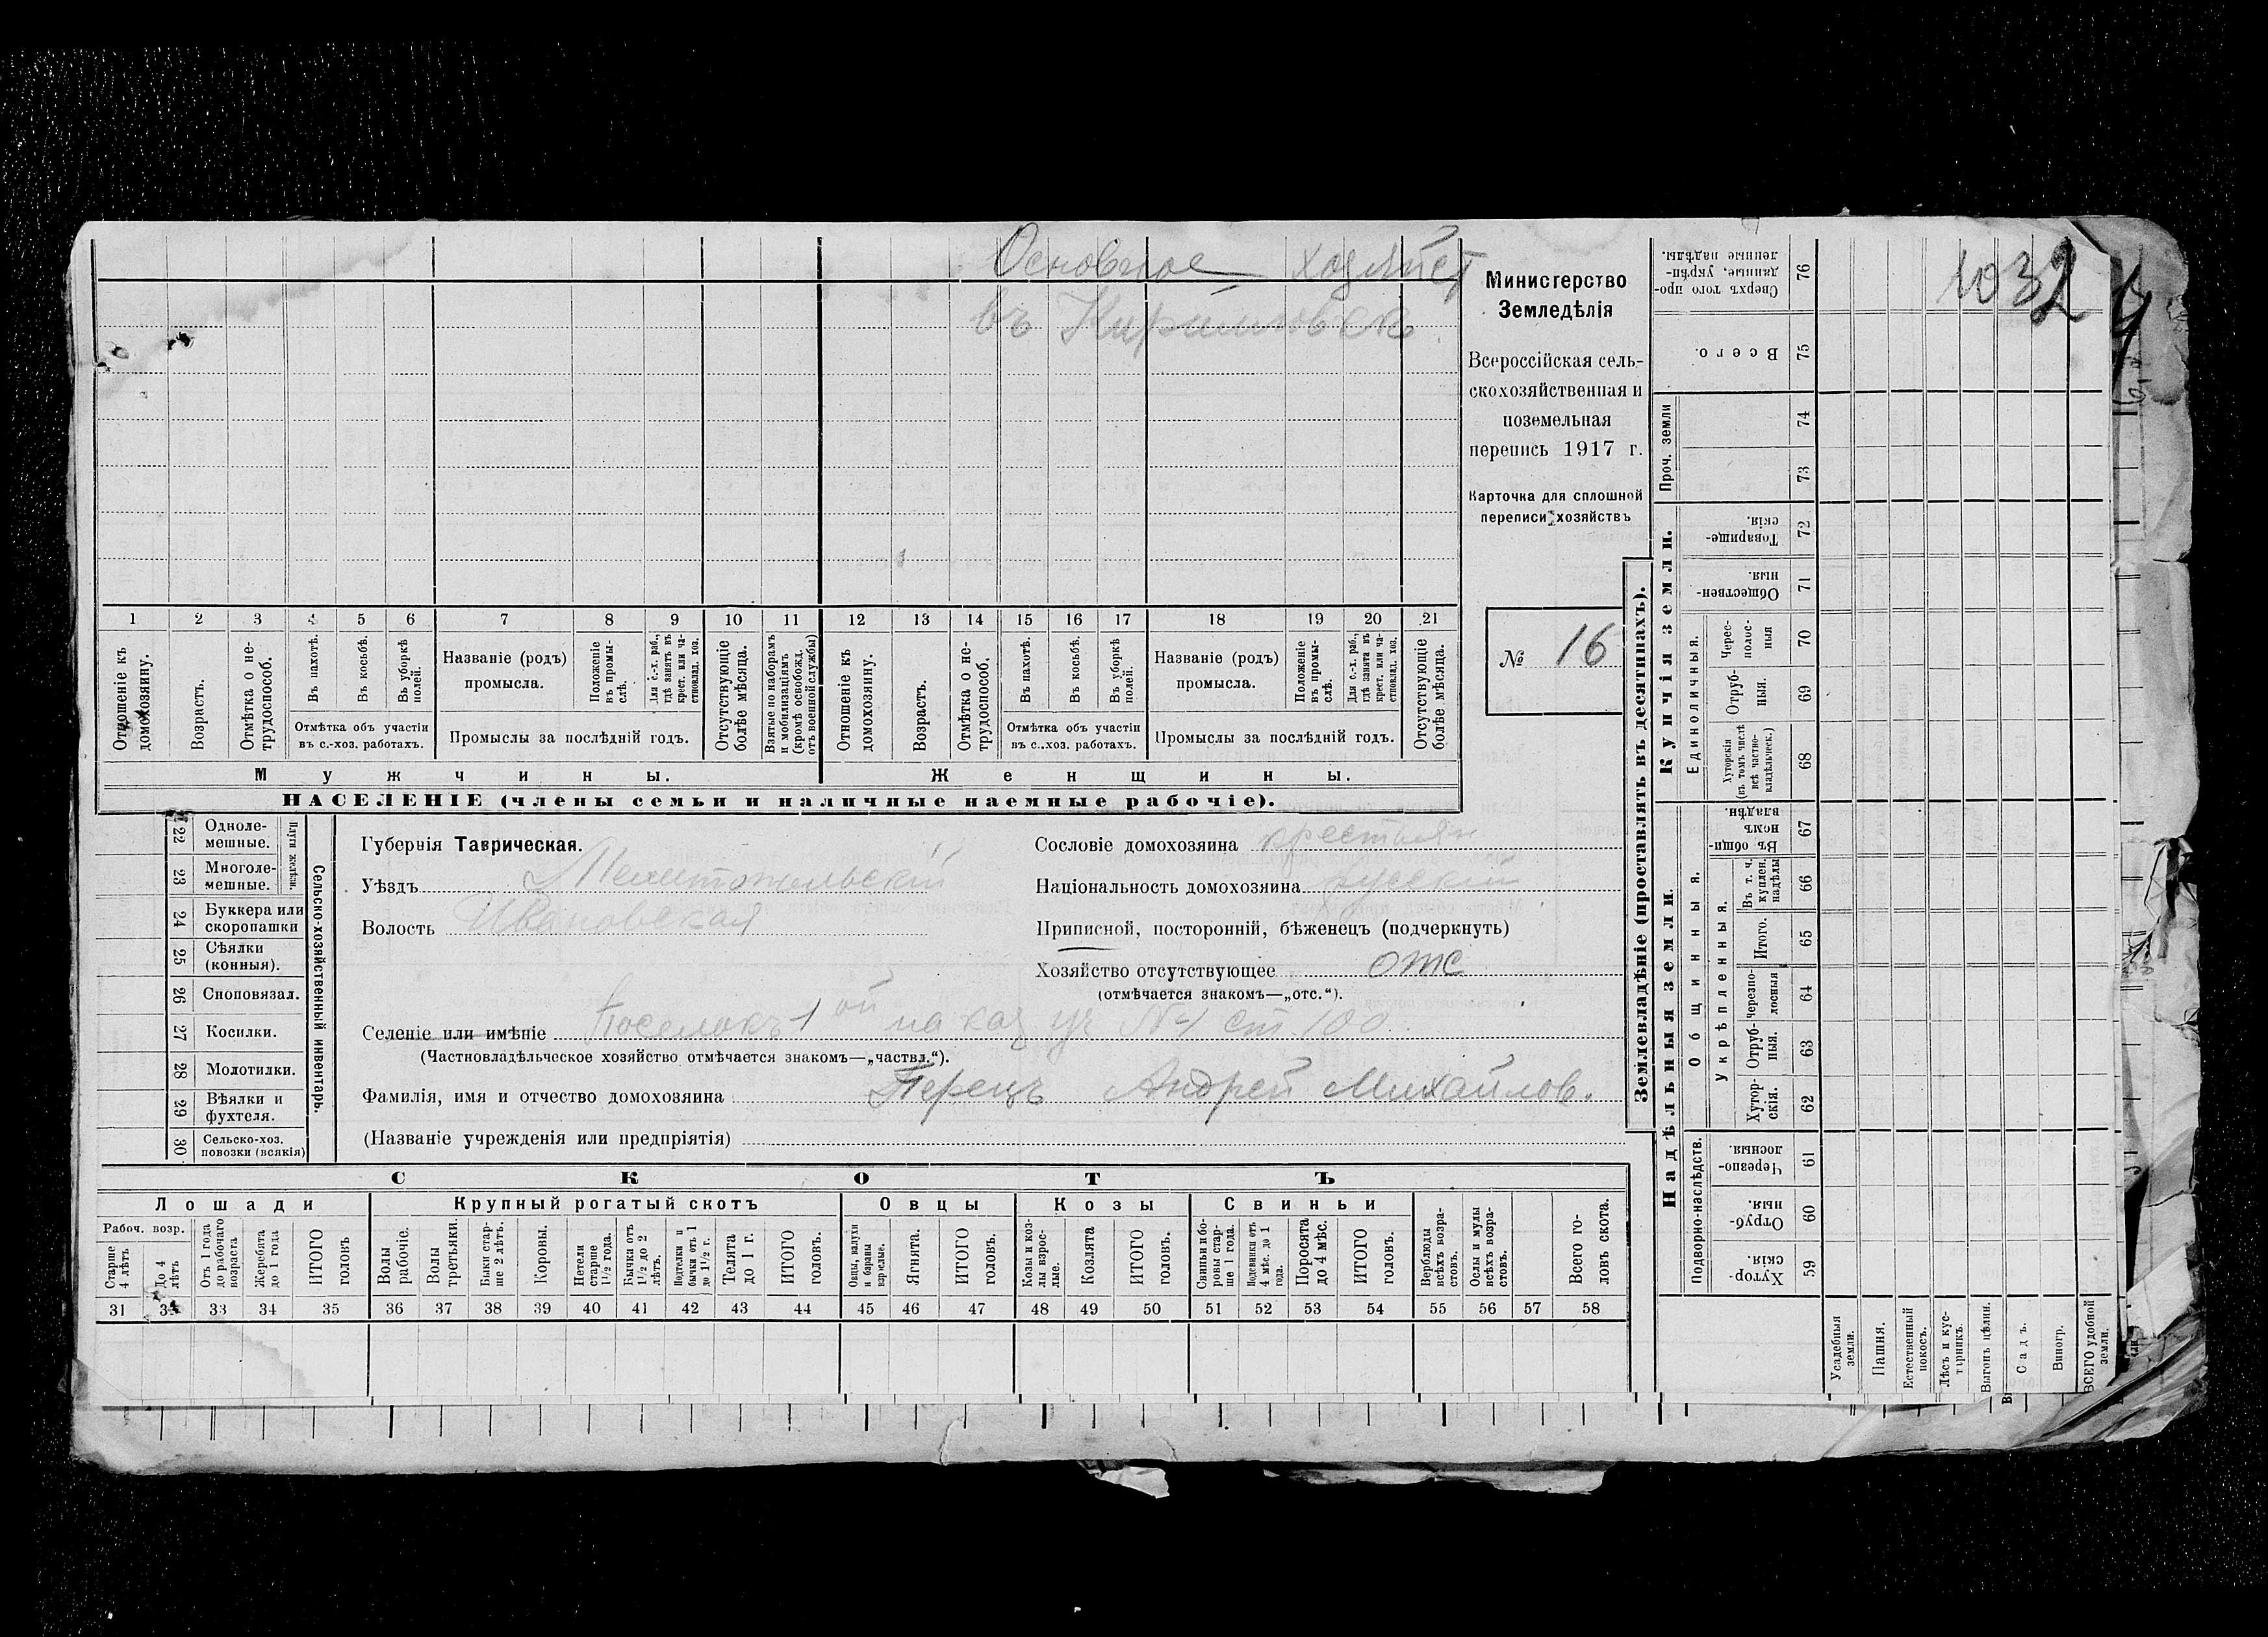 Основное хозяйст
въ Кирилловкѣ
1032
Министерство
Земледѣлія
Всероссійская сель-
скохозяйственная и
поземельная
перепись 1917 г.
Карточка для сплошной
переписи хозяйствъ
№ 16
1 2 3 4 5 6 7 8 9 10 11 12 13 14 15 16 17 18 19 20 21
Отношеніе къ домохозяину.
Возрастъ.
Отмѣтка о не-трудоспособ.
Въ пахотѣ.
Въ косьбѣ.
Въ уборкѣ полей.
Отмѣтка объ участіи
въ с.-хоз. работахъ.
Названіе (родъ)
промысла.
Положеніе въ промы-слѣ.
Для с.-х. раб., гдѣ занятъ въ крест. или ча-стновлад. хоз.
Промыслы за послѣдній годъ.
Отсутствующіе болѣе мѣсяца.
Взятые по наборамъ и мобилизаціямъ (кромѣ освобожд. отъ военной службы)
Отношеніе къ домохозяину.
Возрастъ.
Отмѣтка о не-трудоспособ.
Въ пахотѣ.
Въ косьбѣ.
Въ уборкѣ полей.
Отмѣтка объ участіи
въ с..хоз. работахъ.
Названіе (родъ)
промысла.
Положеніе въ промы-слѣ.
Для с.-х. раб., гдѣ занята въ крест. или ча-стновлад. хоз.
Промыслы за послѣдній годъ.
Отсутствующіе болѣе мѣсяца.
Мужчины.
Женщины.
НАСЕЛЕНІЕ (члены семьи и наличные наемные рабочіе).
22 Одноле-мешные.
23 Многоле-мешные.
Плуги желѣзн.
24 Буккера или скоропашки
25 Сѣялки (конныя).
26 Сноповязал.
27 Косилки.
28 Молотилки.
29 Вѣялки и фухтеля.
30 Сельско-хоз. повозки (всякія)
Сельско-хозяйственный инвентарь.
Губернія Таврическая.
Уѣздъ Мелитопольскій
Волость Ивановская
Сословіе домохозяина крестьян
Національность домохозяина русскій
Приписной, посторонній, бѣженецъ (подчеркнуть)
Хозяйство отсутствующее отс
(отмѣчается знакомъ—„отс.“).
Селеніе или имѣніе Поселокъ 1ой на каз уч № 1 ст 100
(Частновладѣльческое хозяйство отмѣчается знакомъ—„частвл.“).
Фамилія, имя и отчество домохозяина Перецъ Андрей Михайлов.
(Названіе учрежденія или предпріятія)
СКОТЪ
Лошади
Крупный рогатый скотъ
Овцы
Козы
Свиньи
Рабоч. возр.
Старше 4 лѣтъ
До 4 лѣтъ
Отъ 1 года до рабочаго возраста
Жеребята до 1 года
ИТОГО головъ
Волы рабочіе.
Волы третьяки.
Быки стар-ше 2 лѣтъ.
Коровы.
Нетели старше 1½ года.
Бычки отъ 1½ до 2 лѣтъ.
Подтелки и бычки отъ 1 до 1½ г.
Телята до 1 г.
ИТОГО головъ.
Овцы, валухи и бараны взрослые.
Ягнята.
ИТОГО головъ.
Козы и коз-лы взрос-лые.
Козлята
ИТОГО головъ.
Свиньи и бо-ровы стар-ше 1 года.
Подсвинки отъ 4 мѣс. до 1 года.
Поросята до 4 мѣс.
ИТОГО головъ.
Верблюды всѣхъ возра-стовъ.
Ослы и мулы всѣхъ возра-стовъ.
Всего го-ловъ скота.
31 32 33 34 35 36 37 38 39 40 41 42 43 44 45 46 47 48 49 50 51 52 53 54 55 56 57 58
Землевладѣніе (проставлять въ десятинахъ).
Надѣльныя земли.
Купчія земли.
Проч. земли
Подворно-наслѣдств.
Общинныя.
Укрѣпленныя.
Единоличныя.
Сверхъ того про-данные, укрѣп-ленные надѣлы. 76
Всего. 75
74
73
Товарище-скія. 72
Обществен-ныя. 71
Черес-полос-ныя 70
Отруб-ныя. 69
Хуторскія (въ томъ числѣ всѣ частно-владѣльческ.) 68
Въ общин-номъ владѣн. 67
Въ т. ч. куплен. надѣлы 66
Итого. 65
Черезпо-лосныя 64
Отруб-ныя. 63
Хутор-скія. 62
Черезпо-лосныя. 61
Отруб-ныя. 60
Хутор-скія 59
Усадебныя земли.
Пашня.
Естественный покосъ.
Лѣсъ и кус-тарникъ.
Выгонъ цѣлин.
Садъ.
Виногр.
ВСЕГО удобной земли.